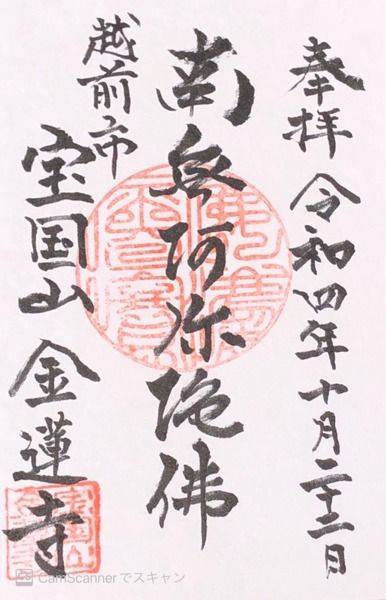 奉拝 令和四年十月二十二日
南無阿弥陀佛
越前市
宝国山 金蓮寺
CamScannerでスキャン